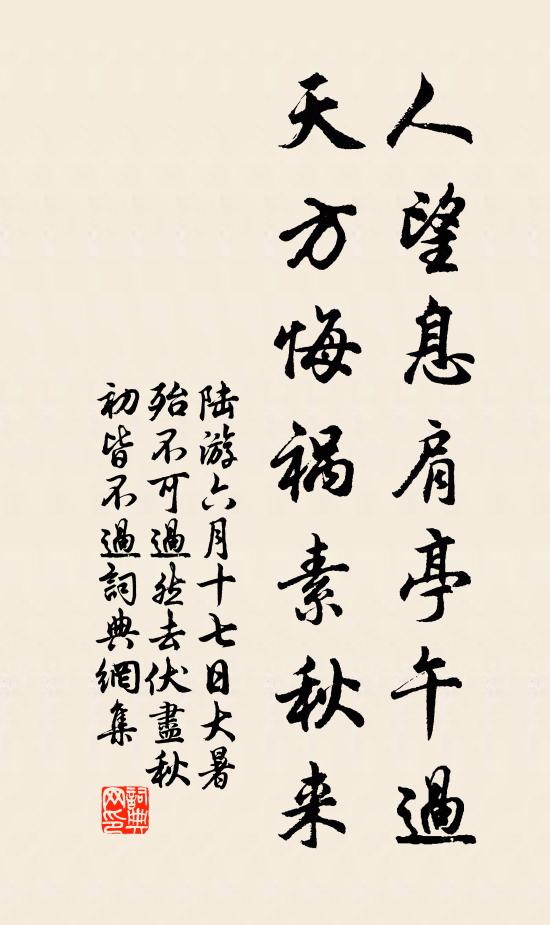 人望息肩亭午過
天方悔禍素秋来
陆游六月十七日大暑
殆不可過然去伏盡秋
初皆不過詞典網集
詞典网印